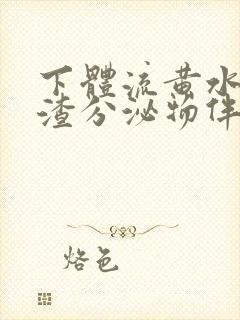 下體流黃水
渣分泌物伴
烙色